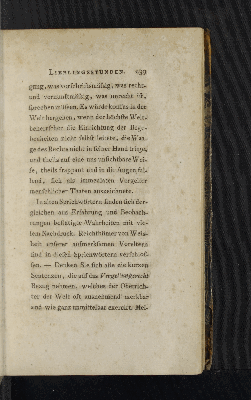 LIEBLINGSSTUNDEN. 239
gung, was vorschriftsmäſsig, was recht-
und vernunftmäſsig, was unrecht ist,
sprechen müssen. Es würde konfus in der
Welt hergehen, wenn der höchste Welt-
beherrscher die Einrichtung der Bege-
benheiten nicht selbst leitete, die Waa-
ge des Rechts nicht in seiner Hand trüge,
und theils auf eine uns unsichtbare Wei-
se, theils frappant und in die Augen fal-
lend, sich als immediaten Vergelter
menschlicher Thaten auszeichnete.
In alten Sprichwörtern finden sich der-
gleichen aus Erfahrung und Beobach-
tungen bestätigte Wahrheiten mit vie-
lem Nachdruck. Reichthümer von Weis-
heit unserer aufmerksamen Voreltern
sind in diesen Sprichwörtern verschlos-
sen. — Denken Sie sich alle die kurzen
Sentenzen, die auf das Vergeltungsrecht
Bezug nehmen, welches der Oberrich-
ter der Welt oft ausnehmend merkbar
und wie ganz unmittelbar exercirt. Hei-